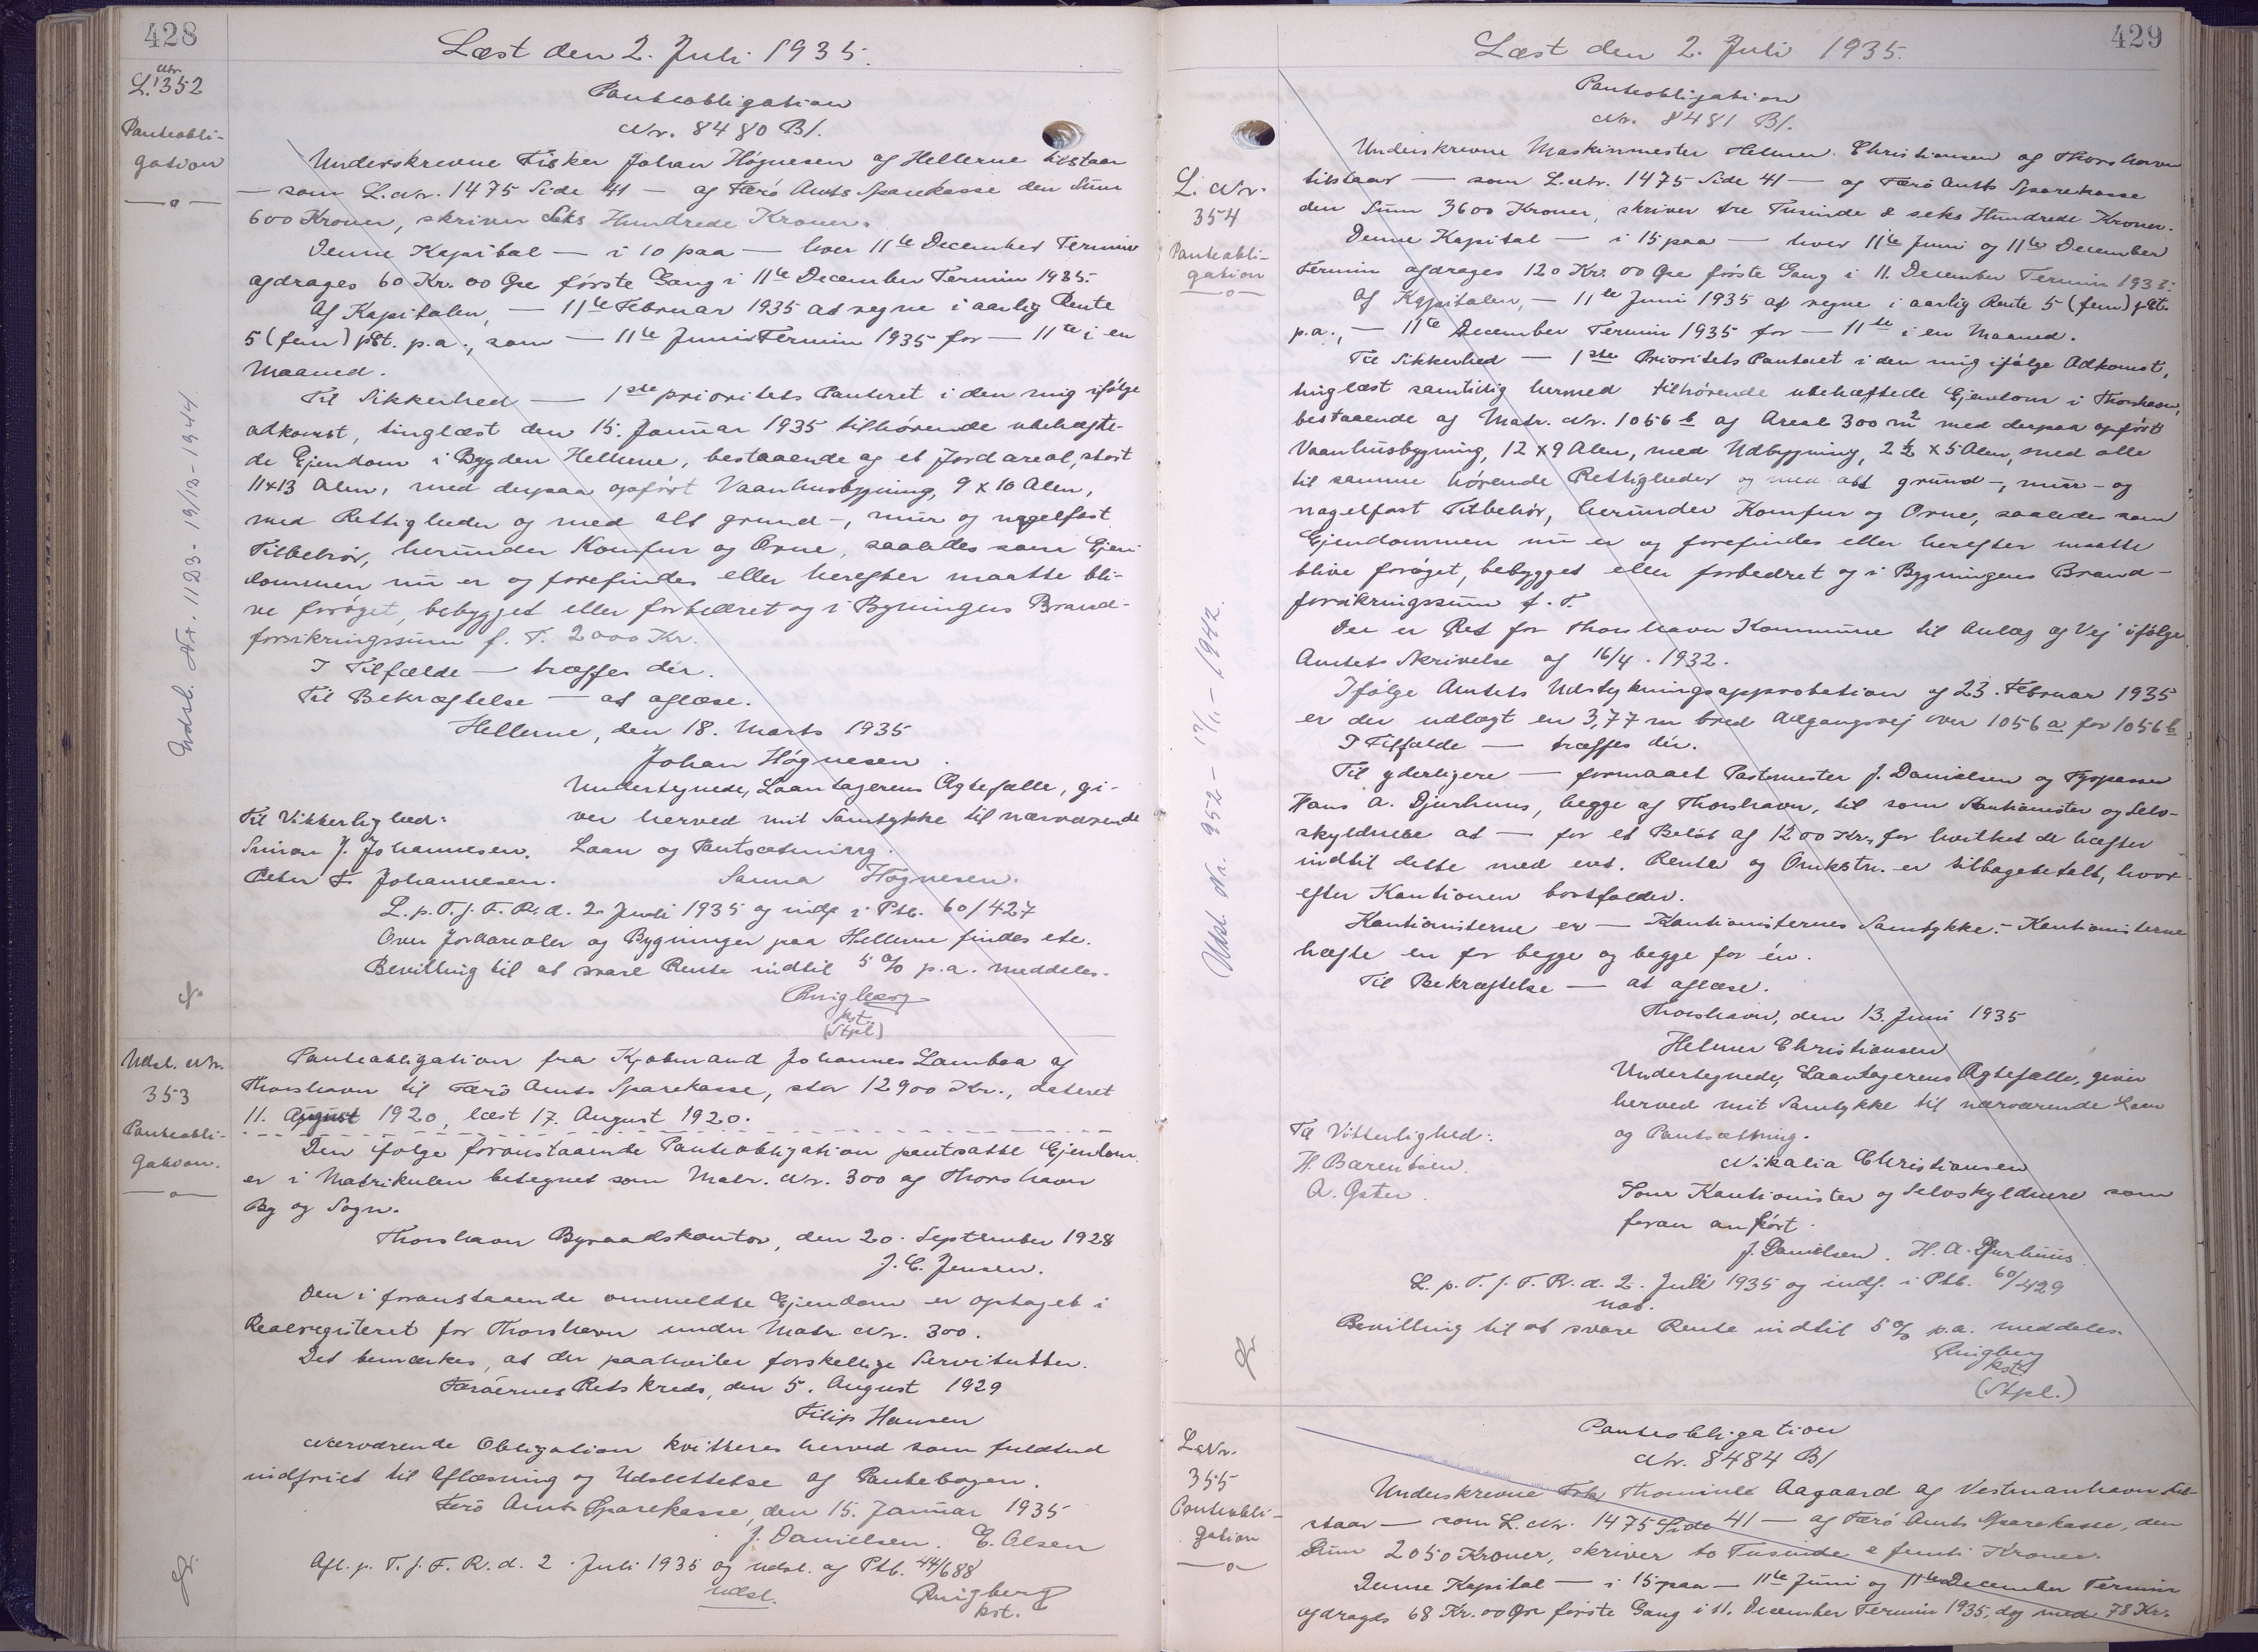 428
Læst den 2. Juli 1935.
L. Nr. 352
Panteobli-
gation
Panteobligation
Nr. 8480 B/.
Underskrevne Fisker Johan Høgnesen af Hellerne tilstaar
— som L. Nr. 1475 Side 41 — af Færø Amts Sparekasse den Sum
600 Kroner, skriver Seks Hundrede Kroner.
Denne Kapital — i 10 paa — hver 11te December Termin
afdrages 60 Kr. 00 Øre første Gang i 11te December Termin 1935.
Af Kapitalen, — 11te Februar 1935 at regne i aarlig Rente
5 (fem) pCt. p.a., som — 11te Juni Termin 1935 for — 11te i en
Maaned.
Til Sikkerhed — 1ste prioritets Panteret i den mig ifølge
adkomst, tinglæst den 15. Januar 1935 tilhørende ubehæfte-
de Ejendom i Bygden Hellerne, bestaaende af et Jordareal, stort
11x13 Alen, med derpaa opført Vaanhusbygning, 9 x 10 Alen,
med Rettigheder og med alt grund-, mur og nagelfast
Tilbehør, herunder Komfur og Ovne, saaledes som Ejen
dommen nu er og forefindes eller herefter maatte bli-
ve forøget, bebygget eller forbedret og i Bygningens Brand-
forsikringssum f. T. 2000 Kr.
I Tilfælde — træffes dér.
Til Bekræftelse — at aflæse.
Hellerne, den 18. Marts 1935
Johan Høgnesen.
Undertegnede, Laantagerens Ægtefælle, gi-
Til Vitterlighed: ver herved mit Samtykke til nærværende
Simon J. Johannesen. Laan og Pantsætning.
Peter F. Johannesen. Sanna Høgnesen.
L. p. T. f. F. R. d. 2. Juli 1935 og indf i Ptb. 60/427
Over Jordarealer og Bygninger paa Hellerne findes ete.
Bevilling til at svare Rente indtil 5 % p.a. meddeles.
Ringberg
kst.
(Stpl)
Udsl. Nr. 1123 - 19/12 - 1944.
Udsl. Nr.
353
Panteobli-
gation.
Panteobligation fra Kjøbmand Johannes Lamboa af
Thorshavn til Færø Amts Sparekasse, stor 12900 Kr., dateret
11. August 1920, læst 17. August 1920.
Den ifølge foranstaaende Panteobligation pantsatte Ejendom
er i Matrikulen betegnet som Matr. Nr. 300 af Thorshavn
By og Sogn.
Thorshavn Byraadskontor, den 20. September 1928
J. C. Jensen.
Den i foranstaaende ommeldte Ejendom er optaget i
Realregisteret for Thorshavn under Matr Nr. 300.
Det bemærkes, at der paahviler forskellige Servitutter.
Færøernes Retskreds, den 5. August 1929
Filip Hansen
Nærværende Obligation kvitteres herved som fuldtud
indfriet til Aflæsning og Udslettelse af Pantebogen.
Færø Amts Sparekasse, den 15. Januar 1935
J. Danielsen. E. Olsen
Afl. p. T. f. F. R. d. 2. Juli 1935 og udsl. af Ptb. 44/688
udsl.
Ringberg
kst.
429
Læst den 2. Juli 1935.
L. Nr.
354
Panteobli-
gation
Panteobligation
Nr. 8481 B/.
Underskrevne Maskinmester Helmer Christiansen af Thorshavn
tilstaar — som L. Nr. 1475 Side 41 — af Færø Amts Sparekasse
den Sum 3600 Kroner, skriver tre Tusinde & seks Hundrede Kroner.
Denne Kapital — i 15 paa — hver 11te Juni og 11te December
Termin afdrages 120 Kr. 00 Øre første Gang i 11. December Termin 1935.
Af Kapitalen, — 11te Juni 1935 at regne i aarlig Rente 5 (fem) pCt.
p.a., — 11te December Termin 1935 for — 11te i en Maaned.
Til Sikkerhed — 1ste Prioritets Panteret i den mig ifølge Adkomst,
tinglæst samtidig hermed tilhørende ubehæftede Ejendom i Thorshavn,
bestaaende af Matr. Nr. 1056 b af Areal 300 m2 med derpaa opført
Vaanhusbygning, 12 x 9 Alen, med Udbygning, 2 1/2 x 5 Alen, med alle
til samme hørende Rettigheder og med alt grund-, mur- og
nagelfast Tilbehør, herunder Komfur og Ovne, saaledes som
Ejendommen nu er og forefindes eller herefter maatte
blive forøget, bebygget eller forbedret og i Bygningens Brand-
forsikringssum f. T.
Der er Ret for Thorshavn Kommune til Anlæg af Vej ifølge
Amtets Skrivelse af 16/4. 1932.
Ifølge Amtets Udstykningsapprobation af 23. Februar 1935
er der udlagt en 3,77 m bred Adgangsvej over 1056 a for 1056 b
I Tilfælde — træffes dér.
Til yderligere — formaaet Postmester J. Danielsen og Fyrpasser
Hans A. Djurhuus, begge af Thorshavn, til som Kautionister og Selv-
skyldnere at — for et Beløb af 1200 Kr., for hvilket de hæfter
indtil dette med evt. Renter og Omkstn. er tilbagebetalt, hvor-
efter Kautionen bortfalder.
Kautionisterne er — Kautionisternes Samtykke. - Kautionisterne
hæfte en for begge og begge for én.
Til Bekræftelse — at aflæse.
Thorshavn, den 13. Juni 1935
Helmer Christiansen
Undertegnede, Laantagerens Ægtefælle, giver
herved mit Samtykke til nærværende Laan
Til Vitterlighed: og Pantsætning.
H. Barentsen. Nikalia Christiansen
A. Øster. Som Kautionister og Selvskyldnere som
foran anført.
J. Danielsen. H. A. Djurhuus.
L. p. T. f. F. R. d. 2. Juli 1935 og indf. i Ptb. 60/429
Bevilling til at svare Rente indtil 5 % p.a. meddeles.
Ringberg
kst.
(Stpl.)
Udsl. Nr. 952 - 1942.
L. Nr.
355
Panteobli-
gation
Panteobligation
Nr. 8484 B/
Underskrevne Aagaard af Vestmanhavn til-
staar — som L. Nr. 1475 Side 41 — af Færø Amts Sparekasse, den
Sum 2050 Kroner, skriver to Tusinde & femti Kroner.
Denne Kapital — i 15 paa — 11te Juni og 11te December Termin
afdrages 68 Kr. 00 Øre første Gang i 11. December Termin 1935, dog med 78 Kr.